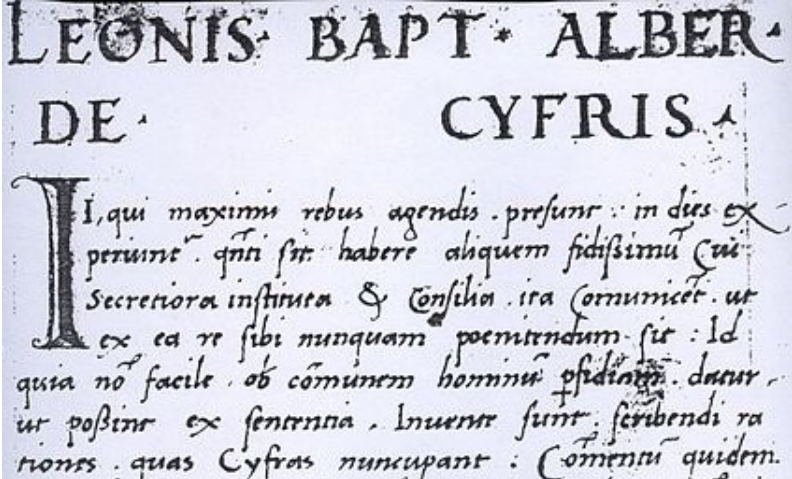 LEONIS· BAPT· ALBER·
DE· CYFRIS·
II, qui maximis rebus agendis . presunt : in dies ex
periunt᷑ . qñti sit habere aliquem fidissimũ Cui
Secretiora instituta & Consilia . ita Comunicẽt . ut
ex ea re sibi nunquam poenitendum sit : Id
quia nõ facile . ob cõmunem hominũ ꝑfidiam . datur .
ut poßint ex sententia . Inuente sunt . scribendi ra
tiones . quas Cyfras nuncupant : Cõmentũ quidem .